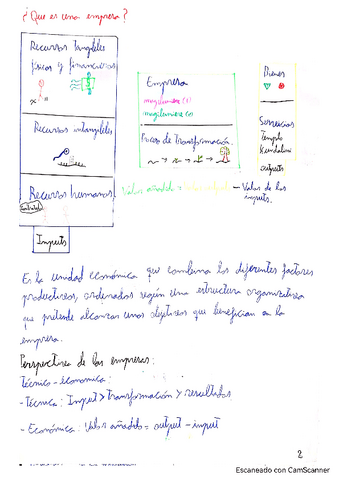 ¿Que es una empresa?
Recursos Tangibles
físicos y financieros
Recursos intangibles
Recursos humanos
Inputs
Empresa
Proceso de Transformación
Bienes
Servicios
Templo
Kundalini
outputs
Valor añadido =
- Valor de los
inputs.
Es la unidad económica que combina los diferentes factores
productivos, ordenados según una estructura organizativa
que pretende alcanzar unos objetivos que benefician a la
empresa.
Perspectiva de las empresas:
Técnico-económica:
-Técnica: Input > transformación > resultados
- Económica: Valor añadido = output - input
2
Escaneado con CamScanner